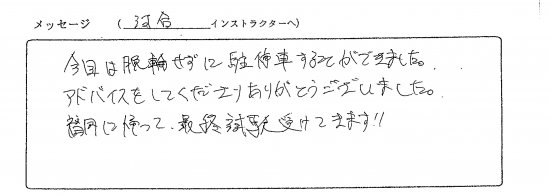 メッセージ (河合 インストラクターへ)
今日は脱輪せずに駐停車することができました。
アドバイスをしてくださりありがとうございました。
に帰って、最終試験受けてきます!!